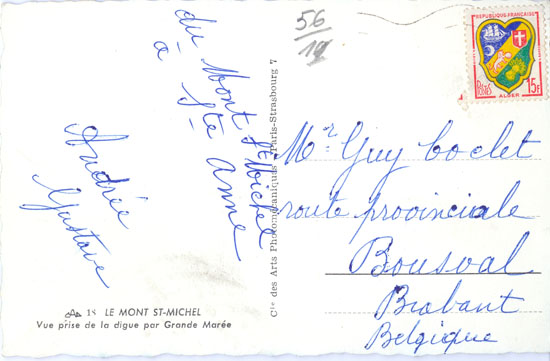 56
19
REPUBLIQUE FRANÇAISE
POSTES
15F
ALGER
du Mont St Michel
à Ste Anne
Andrée
Gustave
Cie des Arts Photomécaniques Paris-Strasbourg 7
Mr Guy Coclet
route provinciale
Bousval
Brabant
Belgique
18 LE MONT ST-MICHEL
Vue prise de la digue par Grande Marée